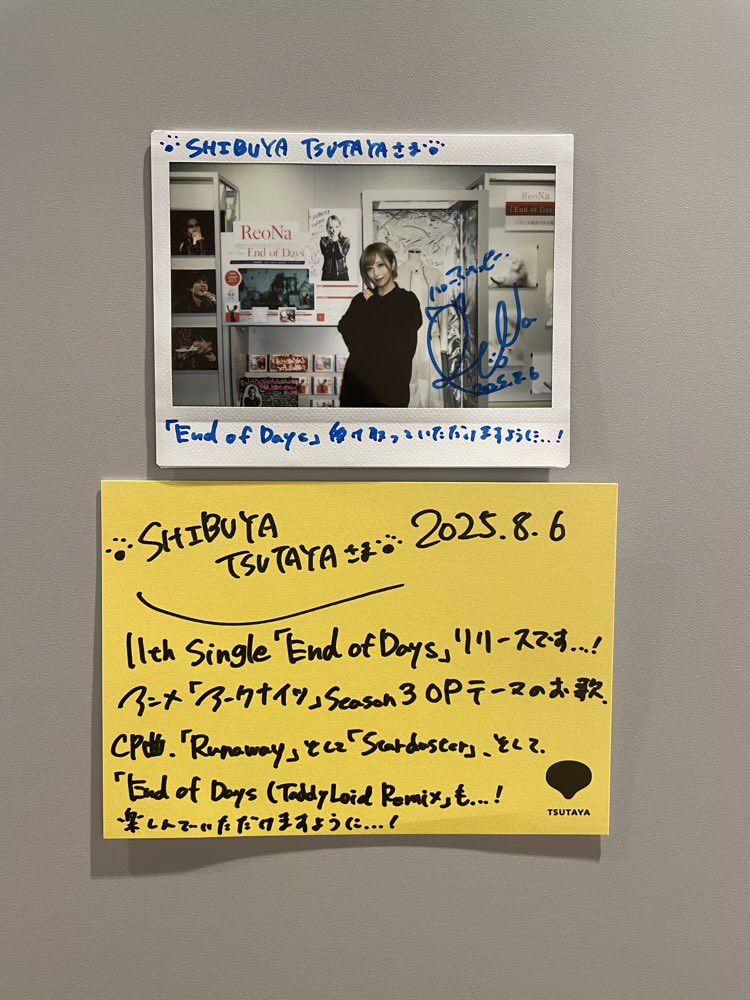 SHIBUYA TSUTAYAさま
ReoNa
End of Days
SHIBUYA
ReoNa
End of Days
ハーフハッピー.
ReoNa
2025.8.6
「End of Days」受け取っていただけますように...!
SHIBUYA
TSUTAYAさま
2025.8.6
11th Single「End of Days」リリースです...!
アニメ「アークナイツ」Season3 OPテーマのお歌.
CP曲.「Runaway」そして「Starduster」、そして.
「End of Days (TeddyLoid Remix」も...!
楽しんでいただけますように...!
TSUTAYA